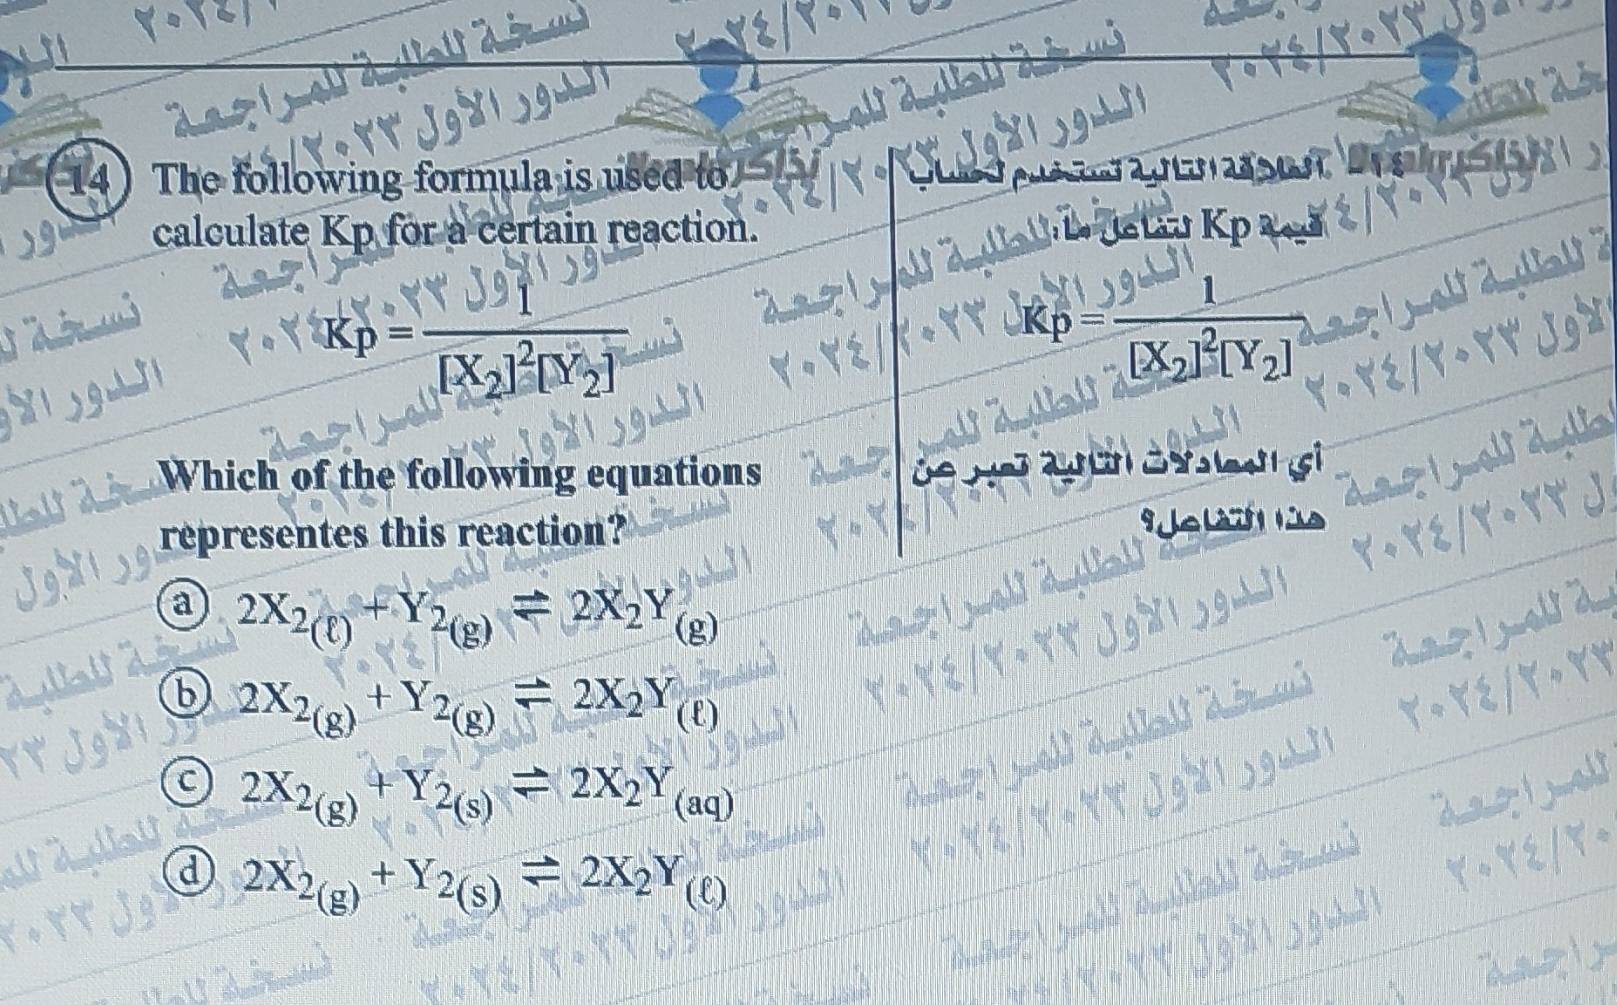 14 The following formula is used to
calculate Kp for a certain reaction.
Kp = 1 / [X₂]²[Y₂]
Which of the following equations
representes this reaction?
a 2X₂(ℓ) + Y₂(g) ⇌ 2X₂Y(g)
b 2X₂(g) + Y₂(g) ⇌ 2X₂Y(ℓ)
c 2X₂(g) + Y₂(s) ⇌ 2X₂Y(aq)
d 2X₂(g) + Y₂(s) ⇌ 2X₂Y(ℓ)
١٤ـ العلاقة التالية تستخدم لحساب
قيمة Kp لتفاعل ما:
Kp = 1 / [X₂]²[Y₂]
أي المعادلات التالية تعبر عن
هذا التفاعل؟
نسخة للطلبة للمراجعة
الدور الأول ٢٠٢٣/٢٠٢٤